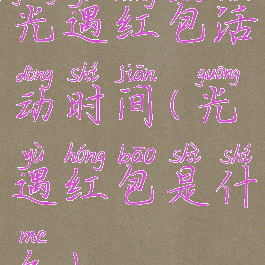 光遇红包活
dòng shí jiān guāng
动时间(光
yù hóng bāo shì shí
遇红包是什
me